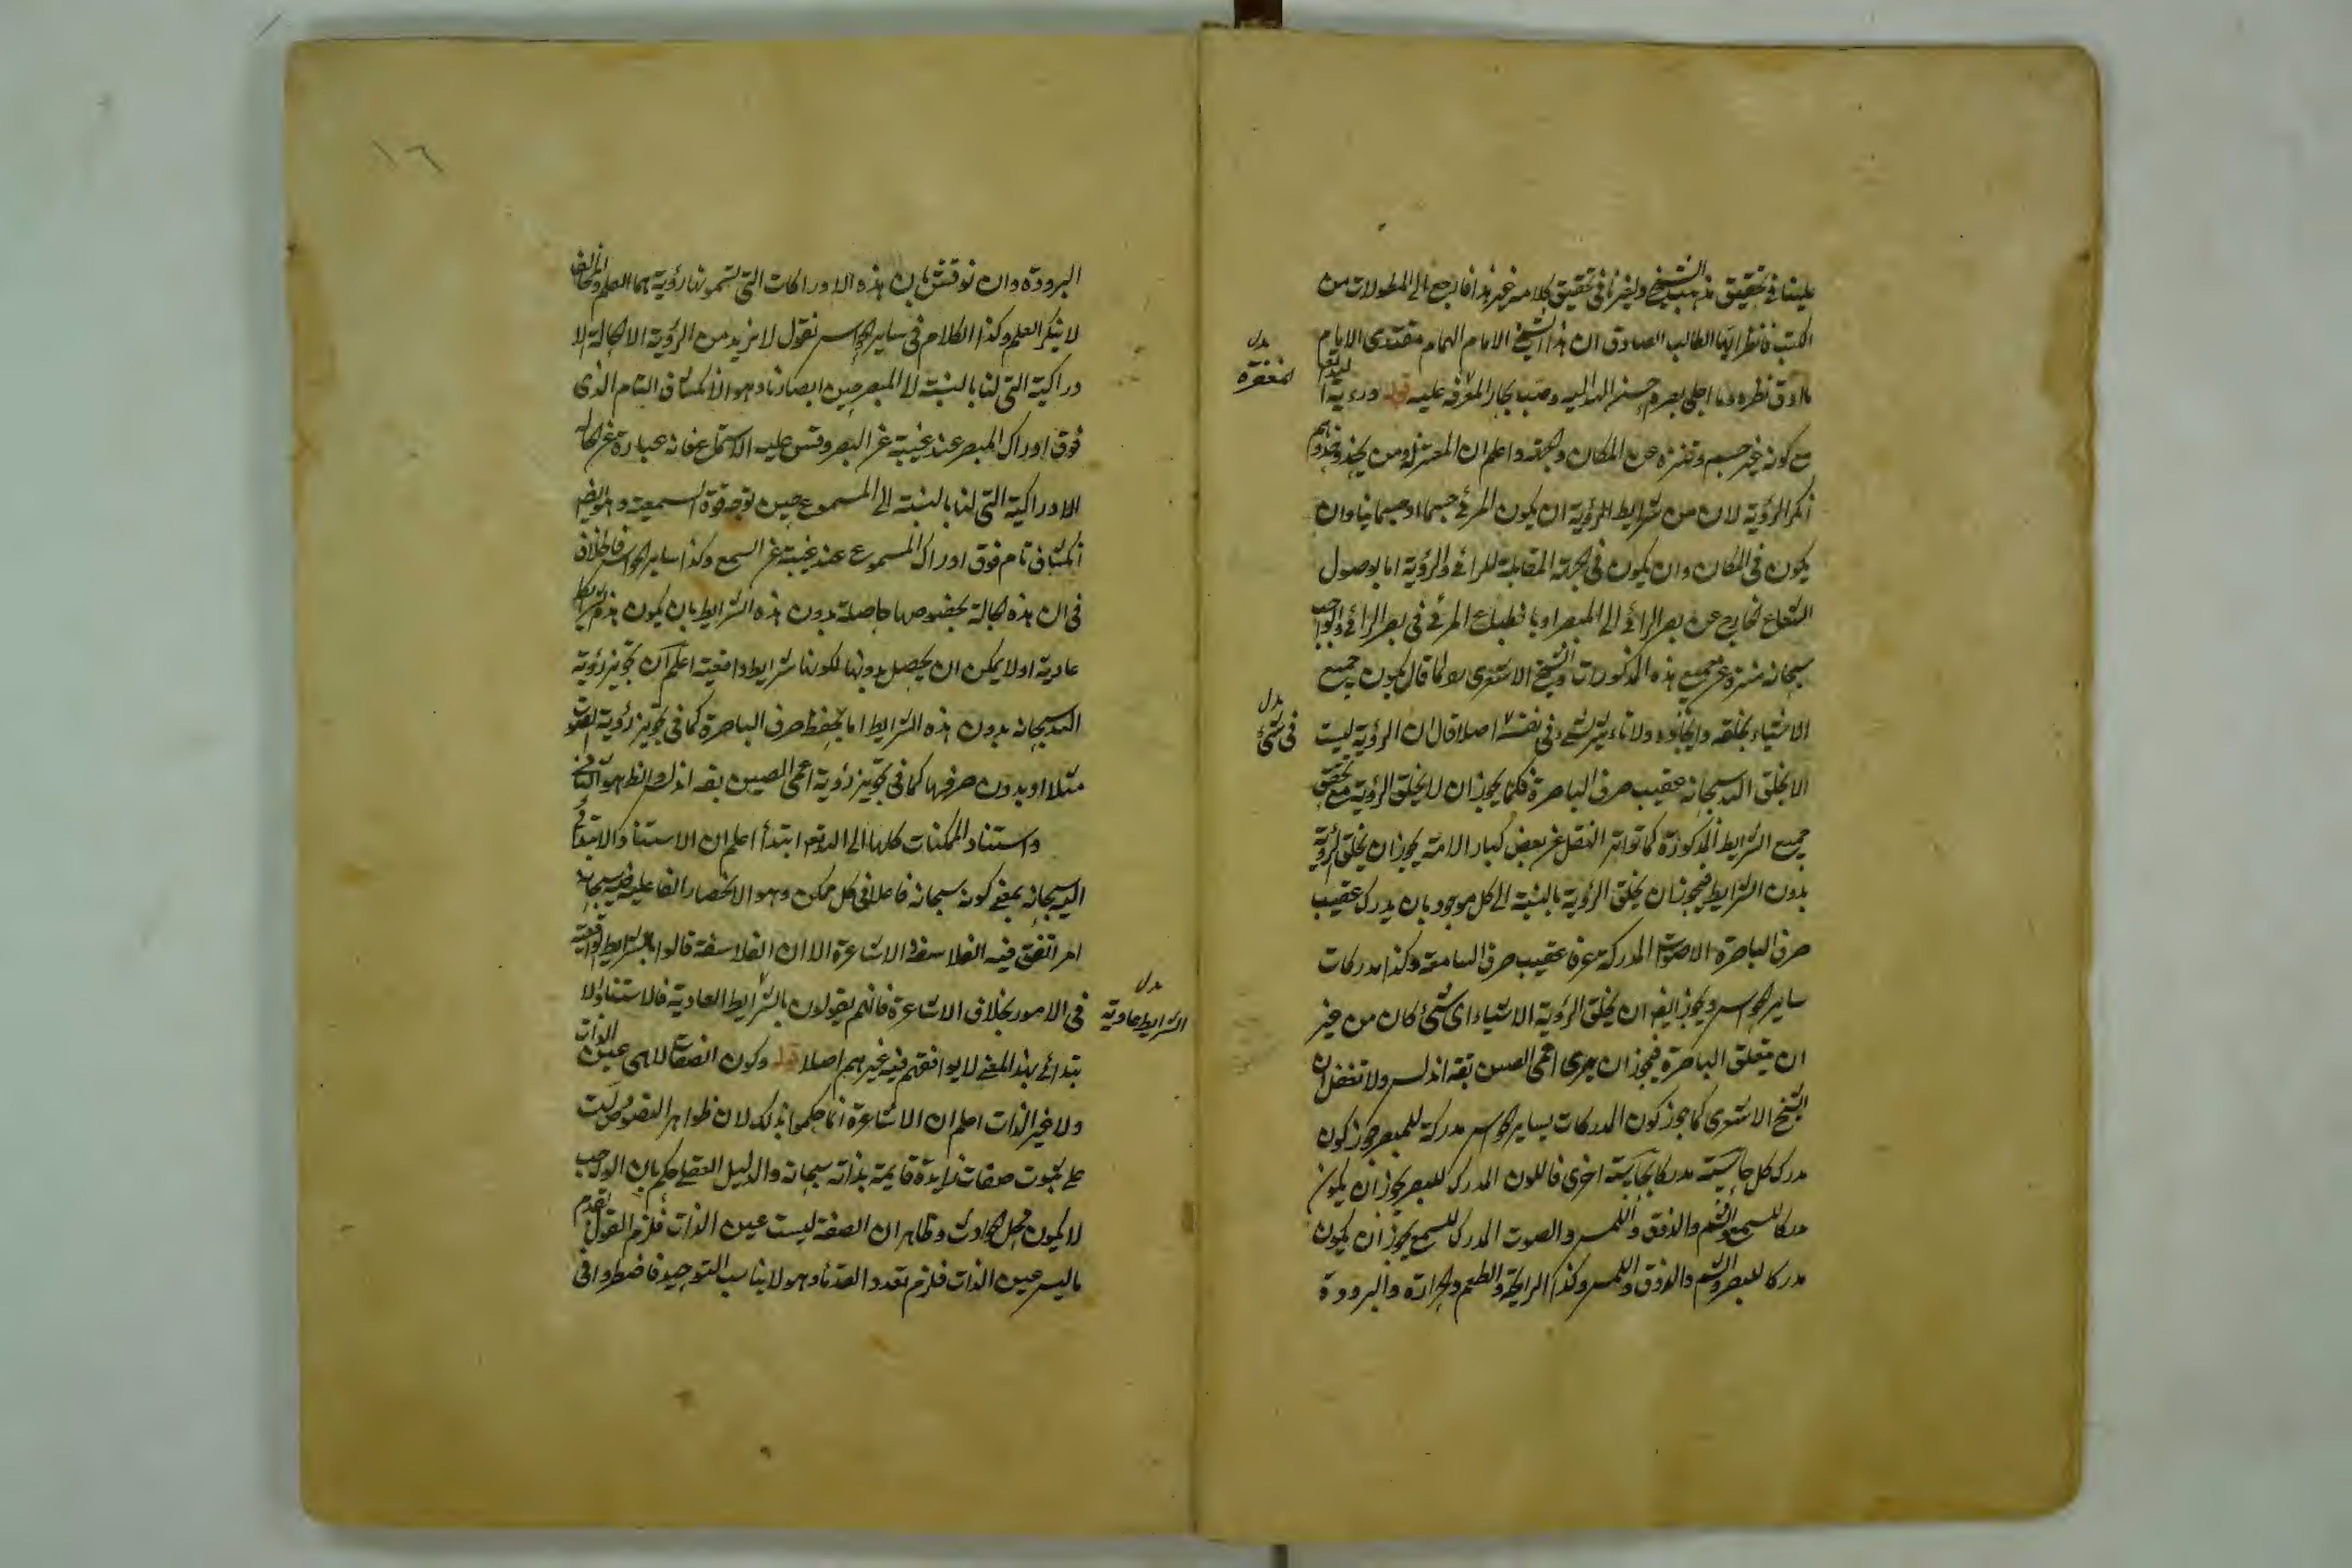 علينا في تحقيق مذهب الشيخ ولغيرنا في تحقيق كلامه غير هذا فارجع الى المطولات من
الكتب فانظر ايها الطالب الصادق ان هذا الشيخ الامام الهمام مقتدى الانام
ما ادق نظره وما اجلى بصره احسن الله اليه وصب بحار المغفرة عليه قوله ورؤية الله تعا
مع كونه غير جسم وتنزه عن المكان والجهة واعلم ان المعتزلة ومن يحذو حذوهم
انكر الرؤية لان من شرايط الرؤية ان يكون المرئي جسما او جسمانيا وان
يكون في المكان وان يكون في الجهة المقابلة للرائي والرؤية اما بوصول
الشعاع الخارج عن بصر الرائي الى المبصر او بانطباع المرئي في بصر الرائي والواجب
سبحانه منزه عن جميع هذه المذكورات والشيخ الاشعري لما قال بكون جميع
الاشياء بخلقه وايجاده ولا تاثير لشيء في نفسه اصلا قال ان الرؤية ليست
الا بخلق الله سبحانه عقيب صرف الباصرة فكما يجوز ان لا يخلق الرؤية مع تحقق
جميع الشرايط المذكورة كما تواتر النقل عن بعض كبار الامة يجوز ان يخلق الرؤية
بدون الشرايط فيجوز ان يخلق الرؤية بالنسبة الى كل موجود بان يدرك عقيب
صرف الباصرة الاصوات المدركة عرفا عقيب صرف السامعة وكذا مدركات
ساير الحواس ويجوز ايضا ان يخلق الرؤية الاشياء اي شيء كان من غير
ان يتعلق الباصرة فيجوز ان يرى اعمى الصين بقة اندلس ولا تغفل ان
الشيخ الاشعري كما يجوز كون المدركات بساير الحواس مدركة للمبصر يجوز كون
مدرك كل حاسة مدركا بحاسة اخرى فاللون المدرك للبصر يجوز ان يكون
مدركا للسمع والشم والذوق واللمس والصوت المدرك للسمع يجوز ان يكون
مدركا للبصر والشم والذوق واللمس وكذا الرايحة والطعم والحرارة والبرودة
بدل
المغفرة
بدل
في شيء
١٦
البرودة وان نوقش بان هذه الادراكات التي تسمونها رؤية هما العلم والمخالف
لا ينكر العلم وكذا الكلام في ساير الحواس نقول لا نريد من الرؤية الا الحالة الا
دراكية التي لنا بالنسبة الى المبصر حين ابصارنا وهو الانكشاف التام الذي
فوق ادراك المبصر عند غيبته عن البصر وقس عليه الاستماع فانه عبارة عن الحالة
الادراكية التي لنا بالنسبة الى المسموع حين توجه قوة السمعية وهو ايضا
انكشاف تام فوق ادراك المسموع عند غيبته عن السمع وكذا ساير الحواس فالخلاف
في ان هذه الحالة بخصوصها حاصلة بدون هذه الشرايط بان يكون هذه شرايط
عادية او لا يمكن ان يحصل بدونها لكونها شرايط واقعية اعلم ان تجويز رؤية
الله سبحانه بدون هذه الشرايط اما بحفظ صرف الباصرة كما في تجويز رؤية الصوت
مثلا او بدون صرفها كما في تجويز رؤية اعمى الصين بقة اندلس والظاهر هو الثاني
واستناد الممكنات كلها الى الله تعا ابتدأ اعلم ان الاستناد الابتدائي
اليه سبحانه بمعنى كونه سبحانه فاعلا في كل ممكن وهو الانحصار الفاعلية فيه سبحانه
امر اتفق فيه الفلاسفة والاشاعرة الا ان الفلاسفة قالوا بالشرايط الواقعية
في الامور بخلاف الاشاعرة فانهم يقولون بالشرايط العادية فالاستناد الا
بتدائي بهذا المعنى لا يوافقهم فيه غيرهم اصلا قوله وكون الصفات لا هي عين الذات
ولا غير الذات اعلم ان الاشاعرة انما حكموا بذلك لان ظواهر النصوص دلت
على ثبوت صفات زايدة قايمة بذاته سبحانه والدليل العقلي حكم بان الواجب
لا يكون محل الحوادث وظاهر ان الصفة ليست عين الذات فلزم القول بقدم
ما ليس عين الذات فلزم تعدد القدماء وهو لا يناسب التوحيد فاضطروا في
بدل
الشرايط عادية